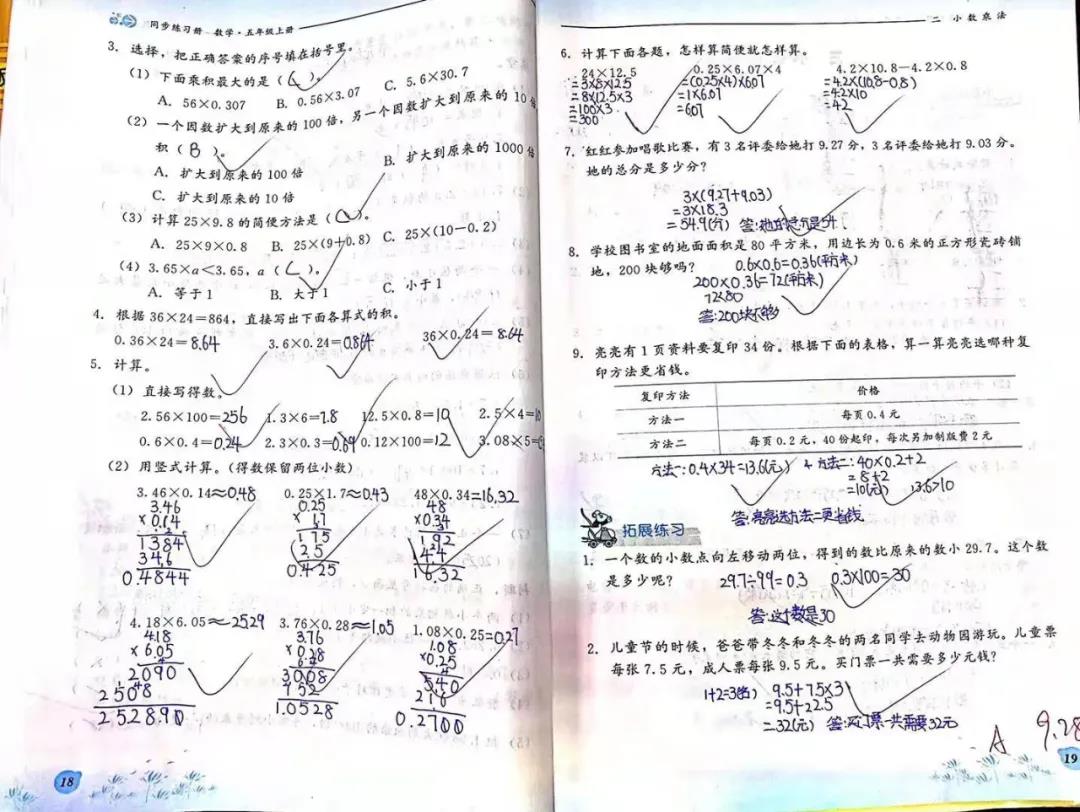 同步练习册 数学·五年级上册
3. 选择,把正确答案的序号填在括号里。
(1) 下面乘积最大的是( C )。
A. 56×0.307 B. 0.56×3.07 C. 5.6×30.7
(2) 一个因数扩大到原来的 100 倍,另一个因数扩大到原来的 10 倍
积( B )。
A. 扩大到原来的 100 倍 B. 扩大到原来的 1000 倍
C. 扩大到原来的 10 倍
(3) 计算 25×9.8 的简便方法是( C )。
A. 25×9×0.8 B. 25×(9+0.8) C. 25×(10-0.2)
(4) 3.65×a<3.65, a ( C )。
A. 等于 1 B. 大于 1 C. 小于 1
4. 根据 36×24=864,直接写出下面各算式的积。
0.36×24=8.64 3.6×0.24=0.864 36×0.24=8.64
5. 计算。
(1) 直接写得数。
2.56×100=256 1.3×6=7.8 12.5×0.8=10 2.5×4=10
0.6×0.4=0.24 2.3×0.3=0.69 0.12×100=12 3.08×5=
(2) 用竖式计算。(得数保留两位小数)
3.46×0.14≈0.48 0.25×1.7≈0.43 48×0.34=16.32
3.46 0.25 48
×0.14 ×1.7 ×0.34
1384 175 192
346 25 144
0.4844 0.425 16.32
4.18×6.05≈25.29 3.76×0.28≈1.05 1.08×0.25=0.27
4.18 3.76 1.08
×6.05 ×0.28 ×0.25
2090 3008 540
2508 752 216
25.2890 1.0528 0.2700
18
二 小数乘法
6. 计算下面各题,怎样算简便就怎样算。
24×12.5 0.25×6.07×4 4.2×10.8-4.2×0.8
=3×8×12.5 =(0.25×4)×6.07 =4.2×(10.8-0.8)
=8×12.5×3 =1×6.07 =4.2×10
=100×3 =6.07 =42
=300
7. 红红参加唱歌比赛,有 3 名评委给她打 9.27 分,3 名评委给她打 9.03 分。
她的总分是多少分?
3×(9.27+9.03)
=3×18.3
=54.9(分) 答:她的总分是54
8. 学校图书室的地面面积是 80 平方米,用边长为 0.6 米的正方形瓷砖铺
地,200 块够吗? 0.6×0.6=0.36(平方米)
200×0.36=72(平方米)
72<80
答:200块不够
9. 亮亮有 1 页资料要复印 34 份。根据下面的表格,算一算亮亮选哪种复
印方法更省钱。
复印方法 价格
方法一 每页 0.4 元
方法二 每页 0.2 元,40 份起印,每次另加制版费 2 元
方法一:0.4×34=13.6(元) 方法二:40×0.2+2
=8+2
=10(元) 13.6>10
答:亮亮选方法二更省钱
拓展练习
1. 一个数的小数点向左移动两位,得到的数比原来的数小 29.7。这个数
是多少呢? 29.7÷99=0.3 0.3×100=30
答:这个数是30
2. 儿童节的时候,爸爸带冬冬和冬冬的两名同学去动物园游玩。儿童票
每张 7.5 元,成人票每张 9.5 元。买门票一共需要多少元钱?
1+2=3(名) 9.5+7.5×3
=9.5+22.5
=32(元) 答:买门票一共需要32元
A 9.28
19